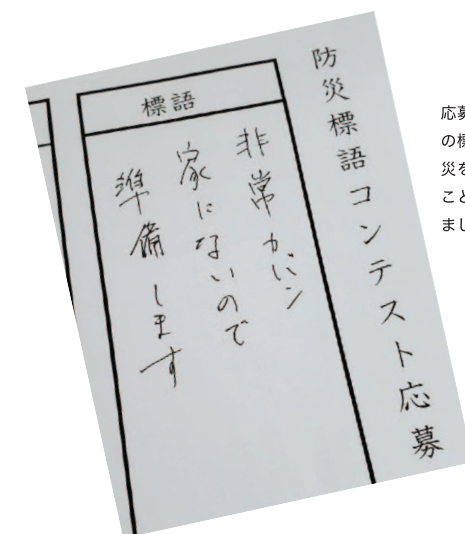 防災標語コンテスト応募
標語
非常かバン
家にないので
準備します
応募
の標
災を
こと
まし